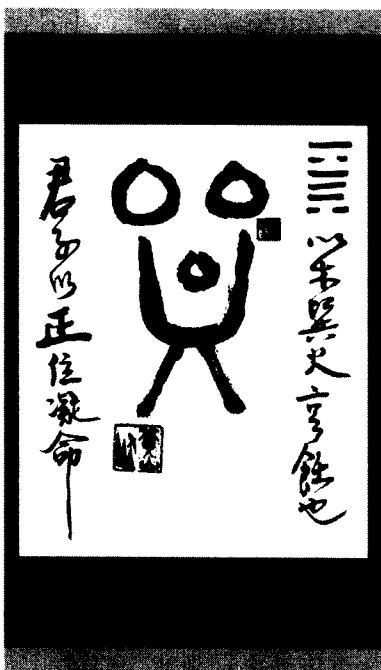 以木巽火亨飪也
君子以正位凝命